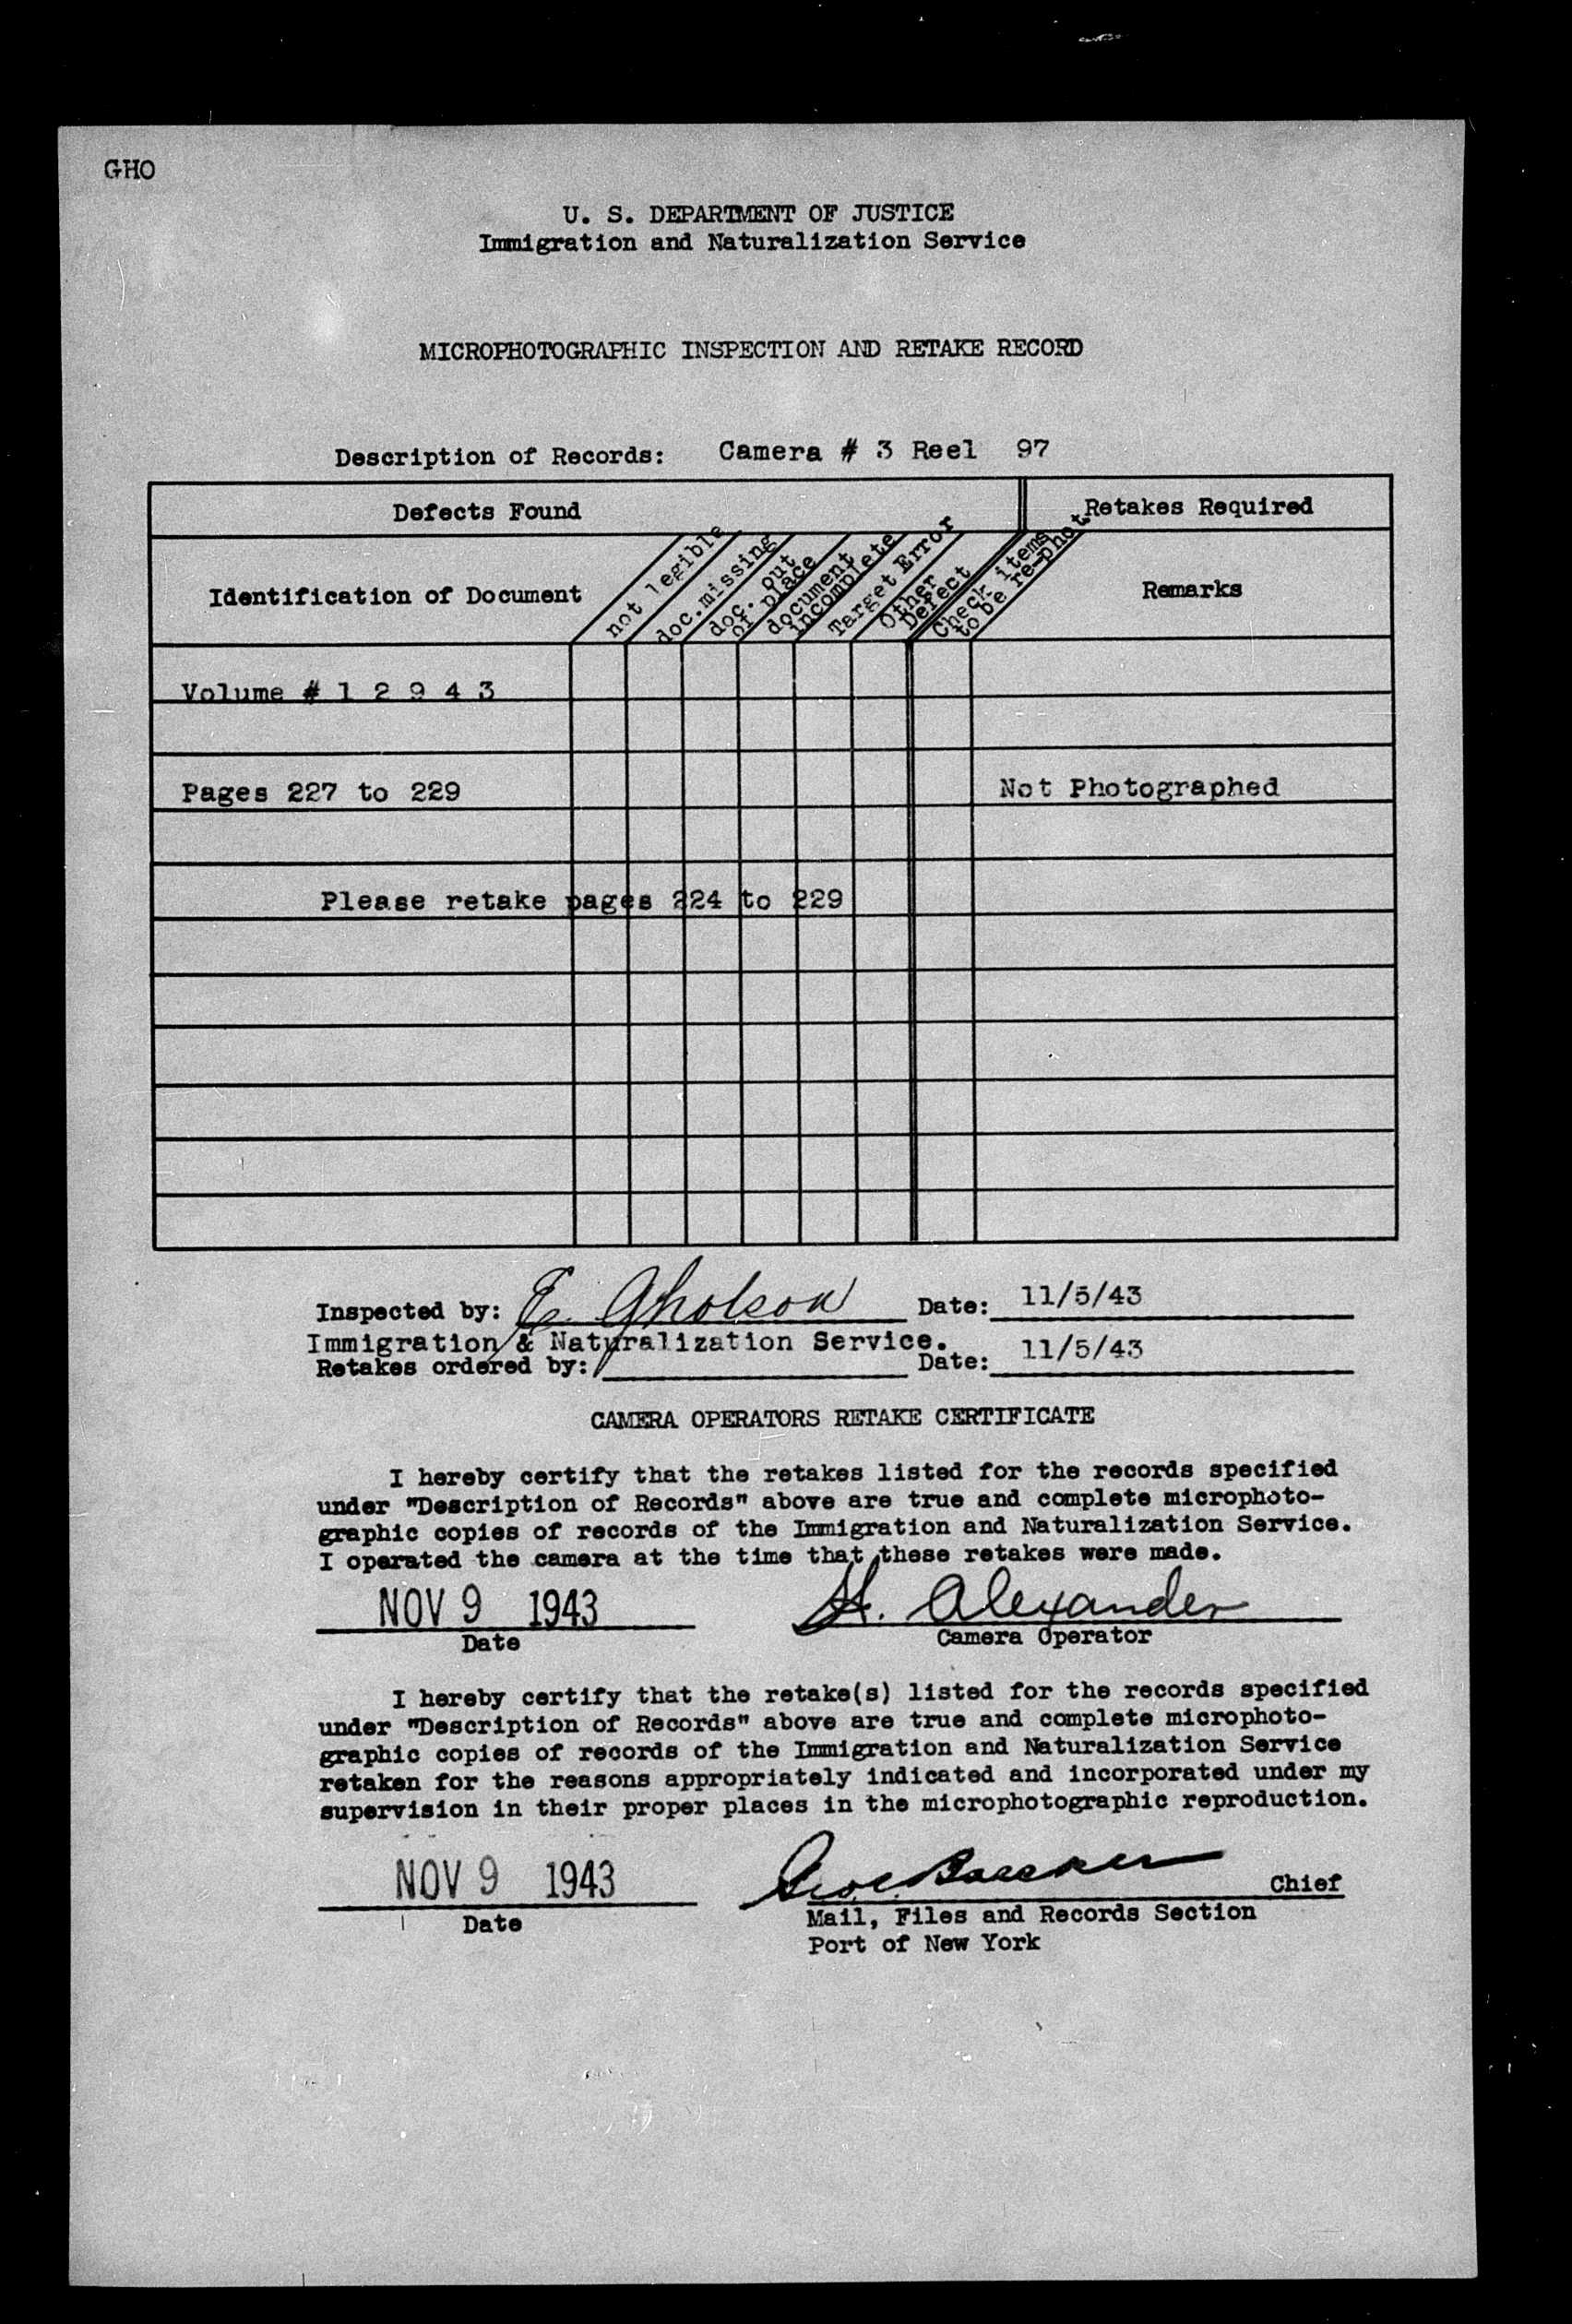 GHO
U. S. DEPARTMENT OF JUSTICE
Immigration and Naturalization Service
MICROPHOTOGRAPHIC INSPECTION AND RETAKE RECORD
Description of Records: Camera # 3 Reel 97
Defects Found
Retakes Required
Identification of Document
not legible
doc.missing
doc. out
of place
document
incomplete
Target Error
Other
Defect
Check items
to be re-phot
Remarks
Volume # 1 2 9 4 3
Pages 227 to 229 Not Photographed
Please retake pages 224 to 229
Inspected by: E. Gholson Date: 11/5/43
Immigration & Naturalization Service.
Retakes ordered by: Date: 11/5/43
CAMERA OPERATORS RETAKE CERTIFICATE
I hereby certify that the retakes listed for the records specified
under "Description of Records" above are true and complete microphoto-
graphic copies of records of the Immigration and Naturalization Service.
I operated the camera at the time that these retakes were made.
NOV 9 1943 H. Alexander
Date Camera Operator
I hereby certify that the retake(s) listed for the records specified
under "Description of Records" above are true and complete microphoto-
graphic copies of records of the Immigration and Naturalization Service
retaken for the reasons appropriately indicated and incorporated under my
supervision in their proper places in the microphotographic reproduction.
NOV 9 1943 Chief
Date Mail, Files and Records Section
Port of New York